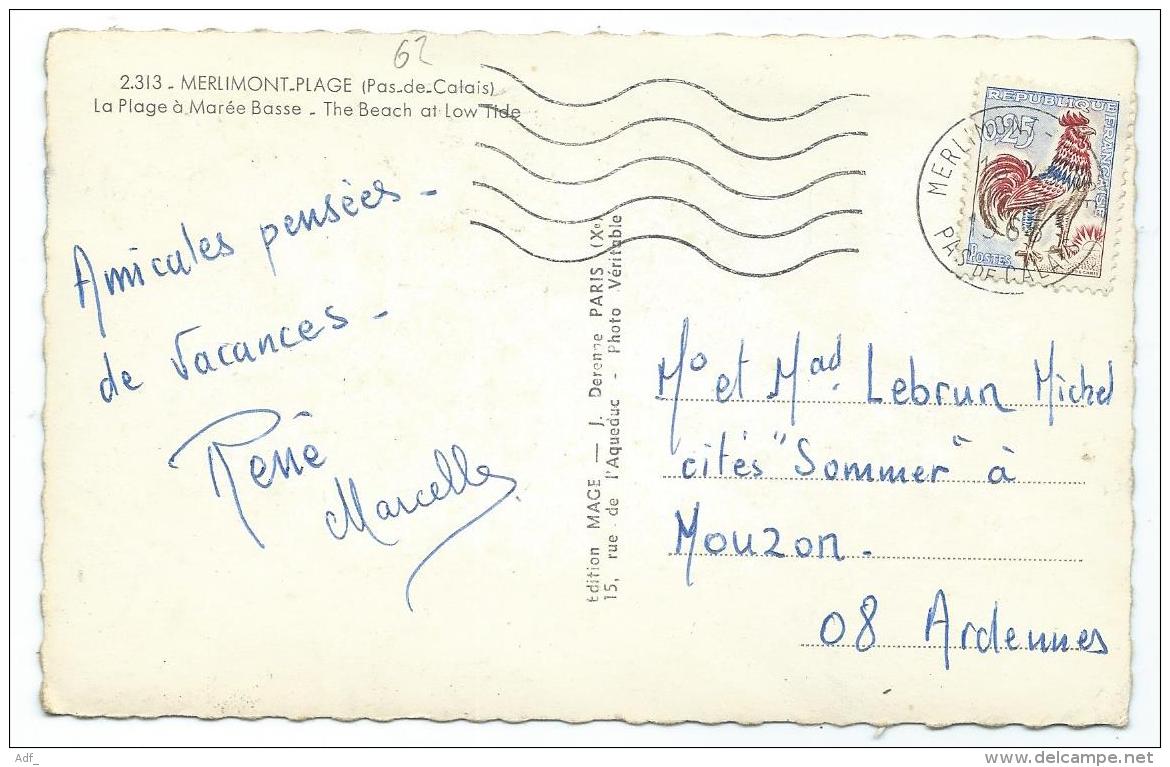 62
2.313 - MERLIMONT-PLAGE (Pas-de-Calais)
La Plage à Marée Basse - The Beach at Low Tide
Amicales pensées -
de vacances -
René
Marcelle
Edition MAGE — J. Derenne PARIS (Xe)
15, rue de l'Aqueduc - Photo Véritable
REPUBLIQUE FRANCAISE
0,25
POSTES
PAS DE CALAIS
Mr et Mad. Lebrun Michel
cités "Sommer" à
Mouzon -
08 Ardennes
Adf_
delcampe.net